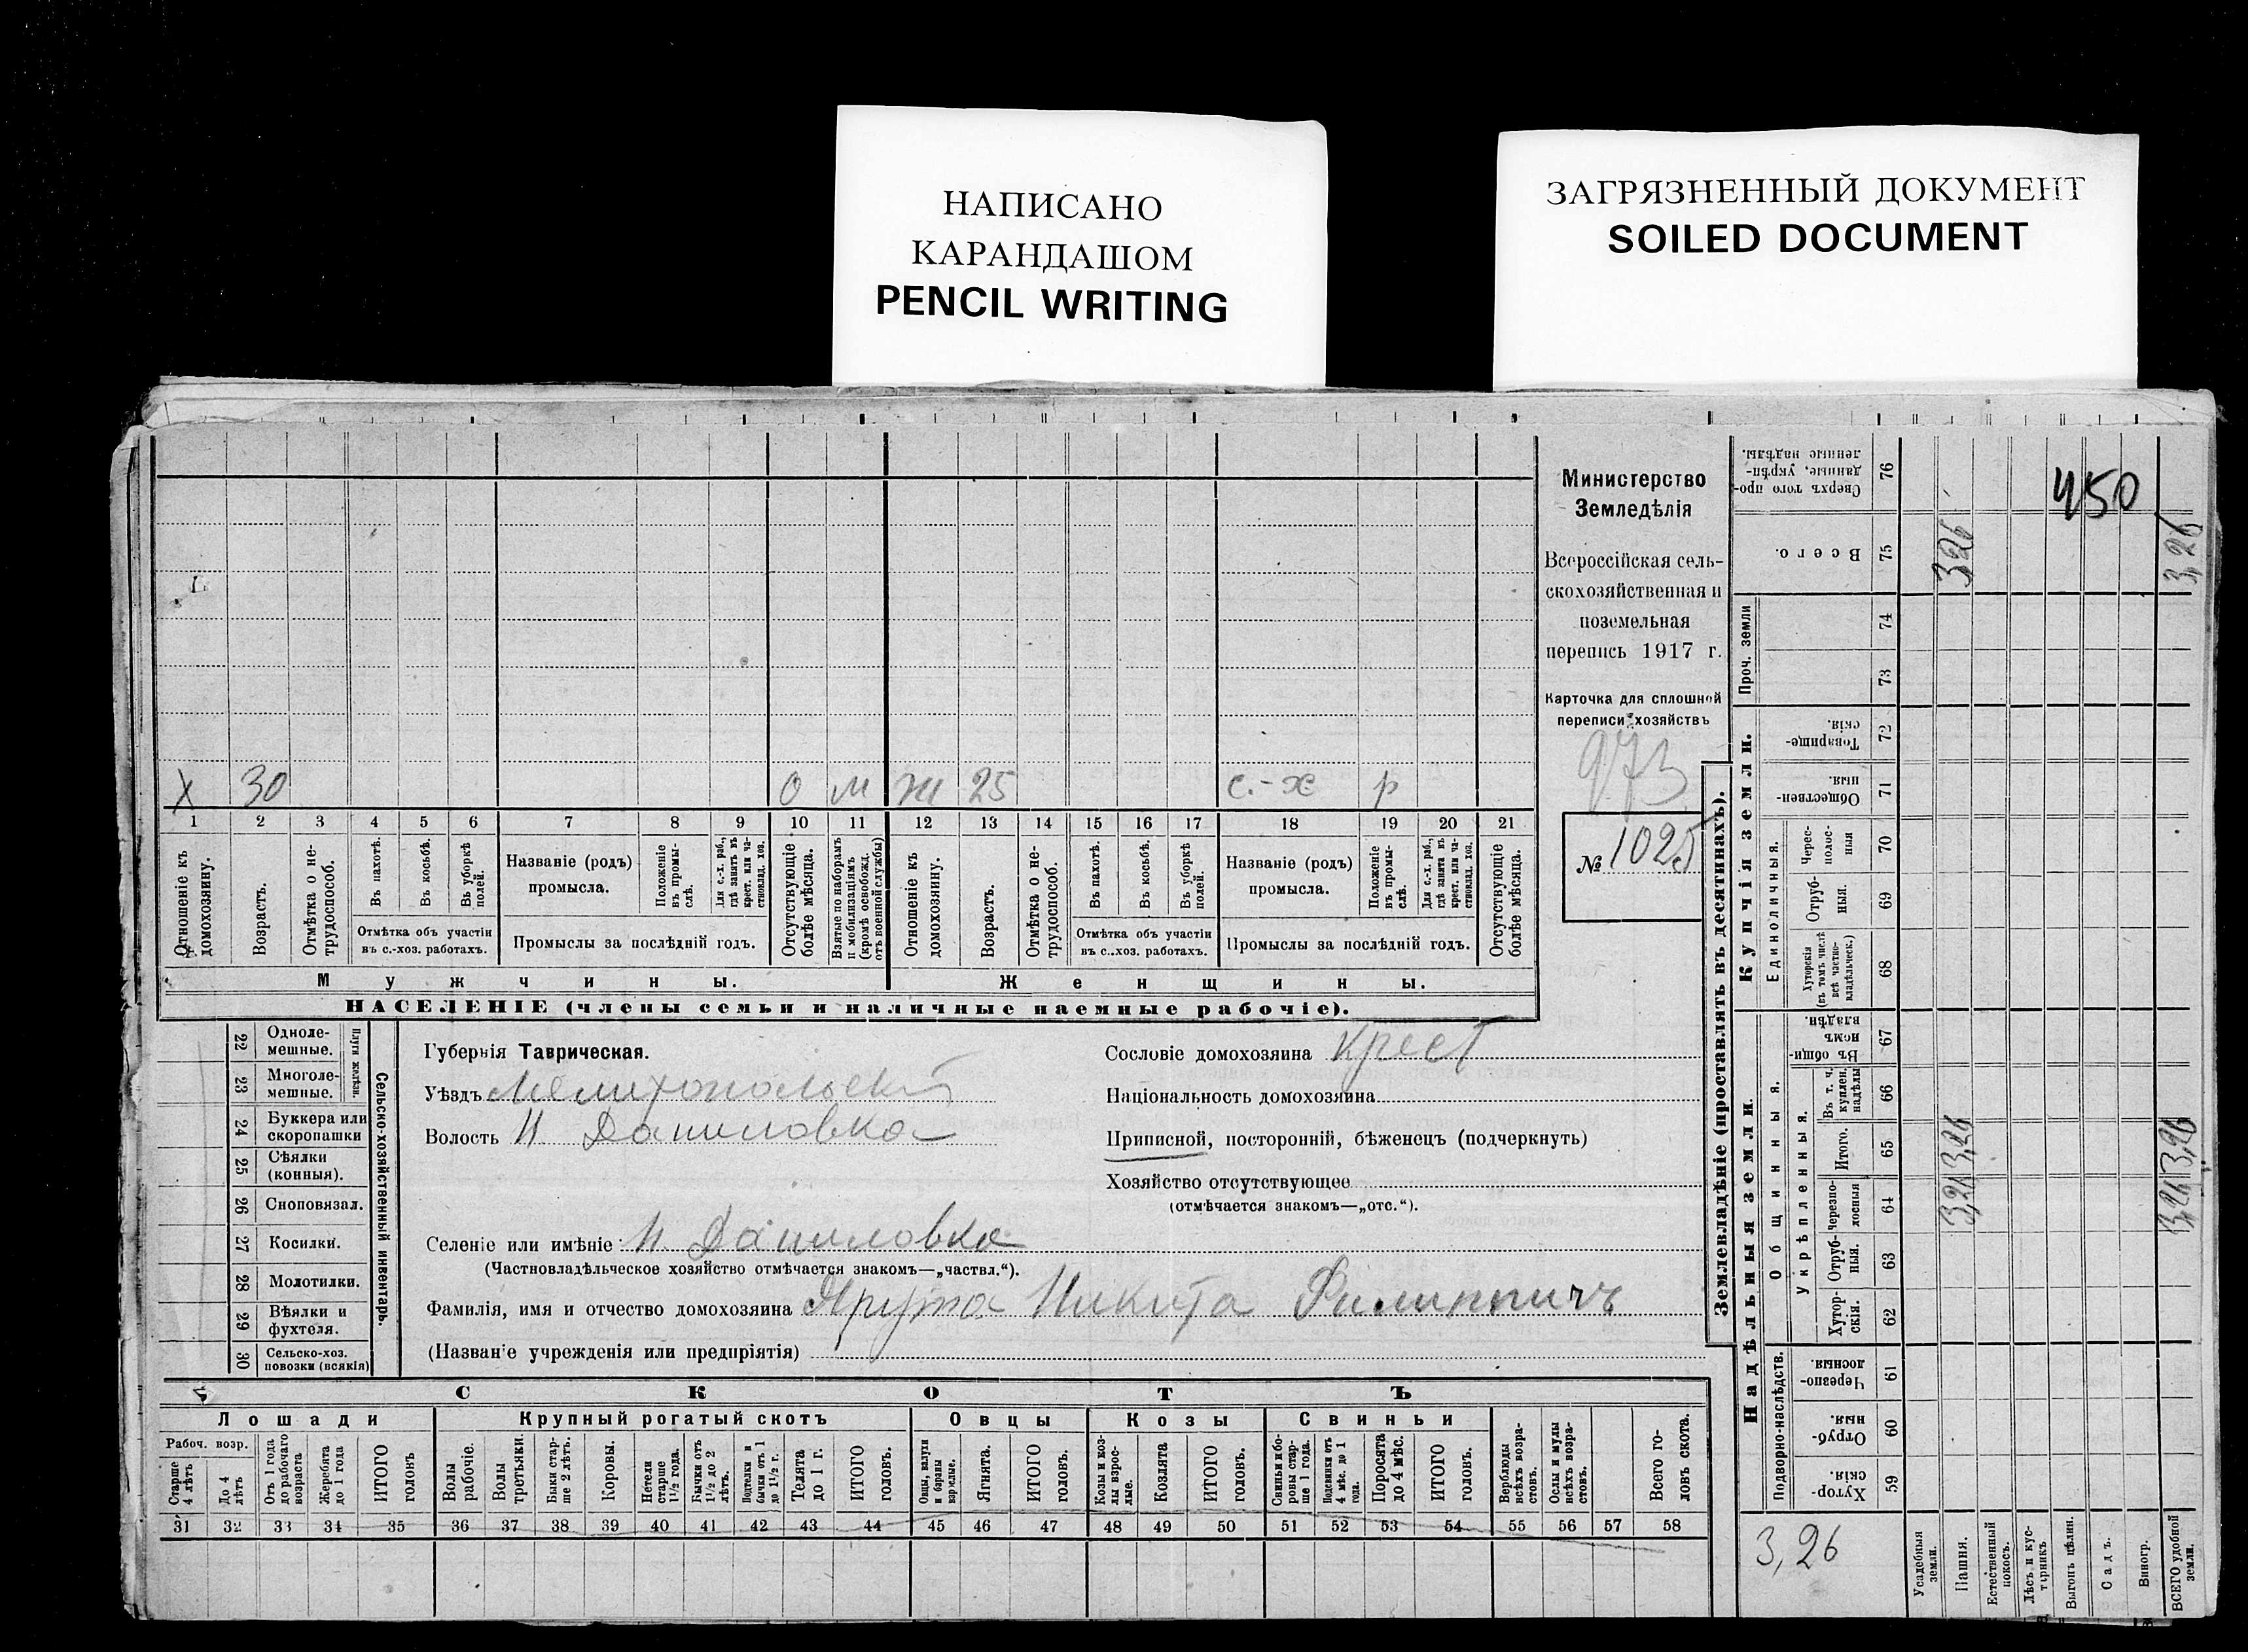 НАПИСАНО
КАРАНДАШОМ
PENCIL WRITING
ЗАГРЯЗНЕННЫЙ ДОКУМЕНТ
SOILED DOCUMENT
Х 30 О М Ж 25 с.-х р
1 2 3 4 5 6 7 8 9 10 11 12 13 14 15 16 17 18 19 20 21
Отношеніе къ домохозяину.
Возрастъ.
Отмѣтка о не-трудоспособ.
Въ пахотѣ.
Въ косьбѣ.
Въ уборкѣ полей.
Отмѣтка объ участіи
въ с.-хоз. работахъ.
Названіе (родъ)
промысла.
Положеніе въ промы-слѣ.
Для с.-х. раб., гдѣ занятъ въ крест. или ча-стновлад. хоз.
Промыслы за послѣдній годъ.
Отсутствующіе болѣе мѣсяца.
Взятые по наборамъ и мобилизаціямъ (кромѣ освобожд. отъ военной службы)
Отношеніе къ домохозяину.
Возрастъ.
Отмѣтка о не-трудоспособ.
Въ пахотѣ.
Въ косьбѣ.
Въ уборкѣ полей.
Отмѣтка объ участіи
въ с.-хоз. работахъ.
Названіе (родъ)
промысла.
Положеніе въ промы-слѣ.
Для с.-х. раб., гдѣ занята въ крест. или ча-стновлад. хоз.
Промыслы за послѣдній годъ.
Отсутствующіе болѣе мѣсяца.
Мужчины.
Женщины.
НАСЕЛЕНІЕ (члены семьи и наличные наемные рабочіе).
Министерство
Земледѣлія
Всероссійская сель-
скохозяйственная и
поземельная
перепись 1917 г.
Карточка для сплошной
переписи хозяйствъ
973
№ 1025
22 Одноле-мешные.
23 Многоле-мешные.
Плуги желѣзн.
24 Буккера или скоропашки
25 Сѣялки (конныя).
26 Сноповязал.
27 Косилки.
28 Молотилки.
29 Вѣялки и фухтеля.
30 Сельско-хоз. повозки (всякія)
Сельско-хозяйственный инвентарь.
Губернія Таврическая.
Уѣздъ Мелитопольский
Волость Н Даниловка
Селеніе или имѣніе Н. Даниловка
(Частновладѣльческое хозяйство отмѣчается знакомъ—„частвл.“).
Фамилія, имя и отчество домохозяина Ярута Никита Филиппичъ
(Названіе учрежденія или предпріятія)
Сословіе домохозяина крест
Національность домохозяина
Приписной, посторонній, бѣженецъ (подчеркнуть)
Хозяйство отсутствующее
(отмѣчается знакомъ—„отс.“).
СКОТЪ
Лошади
Крупный рогатый скотъ
Овцы
Козы
Свиньи
Рабоч. возр.
Старше 4 лѣтъ
До 4 лѣтъ
Отъ 1 года до рабочаго возраста
Жеребята до 1 года
ИТОГО головъ
Волы рабочіе.
Волы третьяки.
Быки стар-ше 2 лѣтъ.
Коровы.
Нетели старше 1½ года.
Бычки отъ 1½ до 2 лѣтъ.
Подтелки и бычки отъ 1 до 1½ г.
Телята до 1 г.
ИТОГО головъ.
Овцы, валухи и бараны взрослые.
Ягнята.
ИТОГО головъ.
Козы и коз-лы взрос-лые.
Козлята
ИТОГО головъ.
Свиньи и бо-ровы стар-ше 1 года.
Подсвинки отъ 4 мѣс. до 1 года.
Поросята до 4 мѣс.
ИТОГО головъ.
Верблюды всѣхъ возра-стовъ.
Ослы и мулы всѣхъ возра-стовъ.
Всего го-ловъ скота.
31 32 33 34 35 36 37 38 39 40 41 42 43 44 45 46 47 48 49 50 51 52 53 54 55 56 57 58
Землевладѣніе (проставлять въ десятинахъ).
Надѣльныя земли.
Купчія земли.
Проч. земли
Сверхъ того про-данные, укрѣп-ленные надѣлы. 76
Всего. 75
74
73
Товарище-скія. 72
Обществен-ныя. 71
Единоличныя.
Черес-полос-ныя 70
Отруб-ныя. 69
Хуторскія (въ томъ числѣ всѣ частно-владѣльческ.) 68
Общинныя.
Въ общин-номъ владѣн. 67
Укрѣпленныя.
Въ т. ч. куплен. надѣлы 66
Итого. 65
Черезпо-лосныя 64
Отруб-ныя. 63
Хутор-скія. 62
Подворно-наслѣдств.
Черезпо-лосныя 61
Отруб-ныя. 60
Хутор-скія. 59
450
3,26
3,26
3,26 3,26
3,26 3,26
3,26
Усадебныя земли.
Пашня.
Естественный покосъ.
Лѣсъ и кус-тарникъ
Выгонъ цѣлин.
Садъ.
Виногр.
ВСЕГО удобной земли.